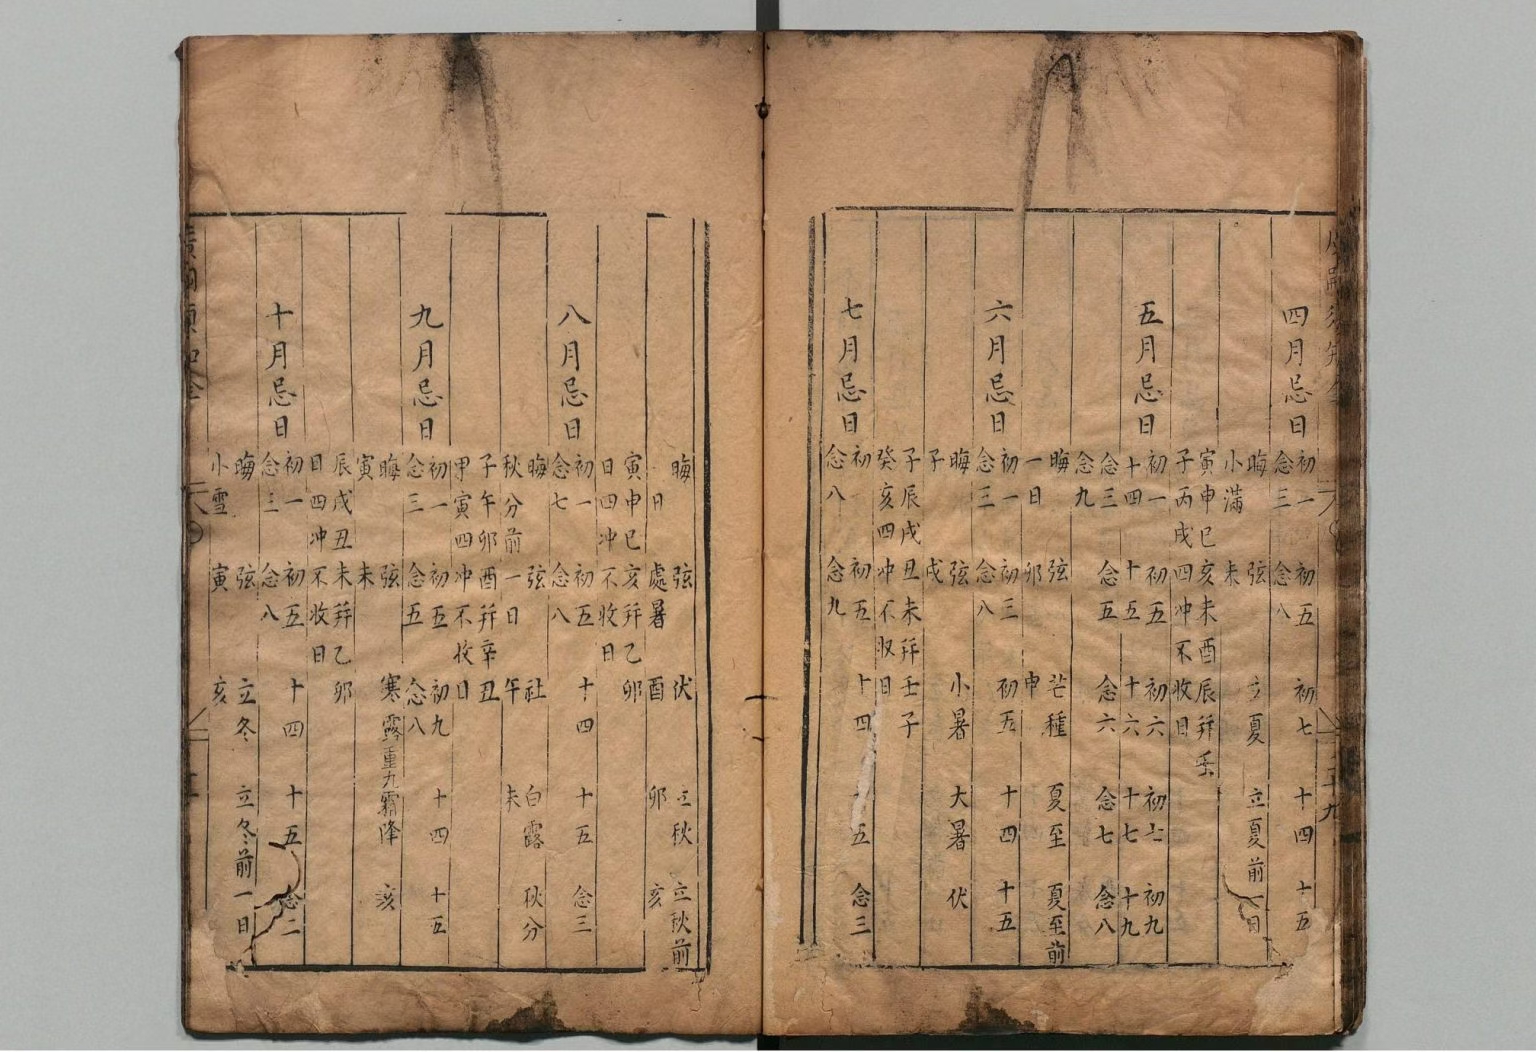 四月忌日 初一 初五 初七 十四 十五
念三 念八
晦 弦 立夏 立夏前一日
小滿 未
寅申巳亥未酉辰并壬
子丙戌四冲不收日
五月忌日 初一 初五 初六 初七 初九
十四 十五 十六 十七 十九
念三 念五 念六 念七 念八
念九
晦 弦 芒種 夏至 夏至前
一日 卯 申
六月忌日 初一 初三 初五 十四 十五
念三 念八
晦 弦 小暑 大暑 伏
子 戌
子辰戌丑未并壬子
癸亥四冲不收日
七月忌日 初 初五 十四 五 念三
念八 念九
晦 弦 伏 立秋 立秋前
日 處暑 酉 卯 亥
寅申巳亥并乙卯
日四冲不收日
八月忌日 初一 初五 十四 十五 念三
念七 念八
晦 弦 社 白露 秋分
秋分前一日 午 未
子午卯酉并辛丑
甲寅四冲不收日
九月忌日 初一 初五 初九 十四 十五
念三 念五 念八
晦 弦 寒露 重九 霜降
寅 未
辰戌丑未并乙卯
日四冲不收日
十月忌日 初一 初五 十四 十五 念二
念三 念八
晦 弦 立冬 立冬前一日
小雪 寅 亥